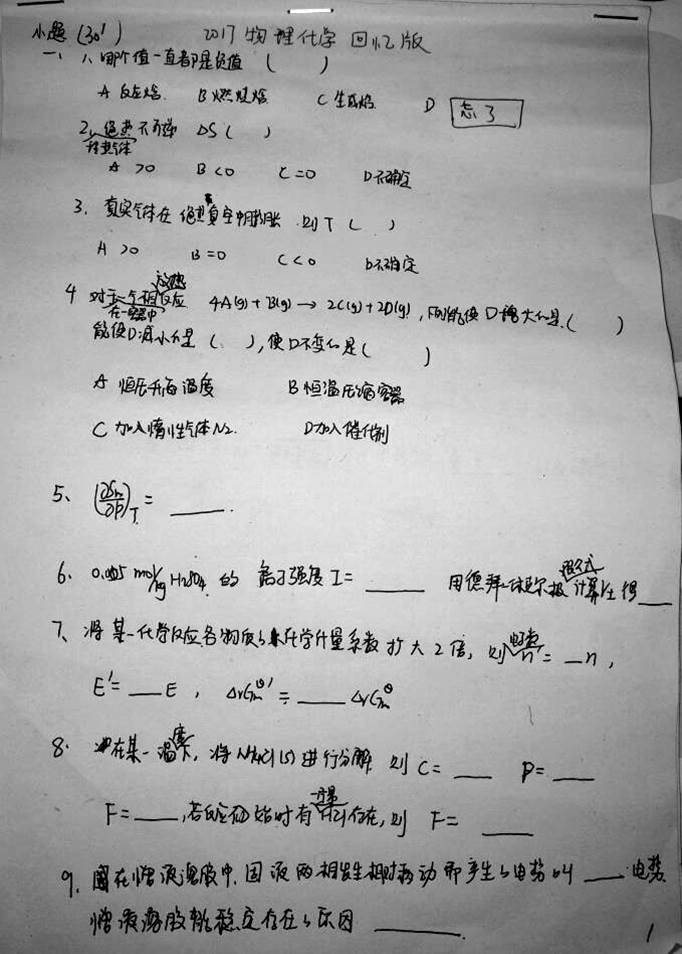 小题(30') 2017物理化学 回忆版
一、1、哪个值一直都是负值( )
A 反应焓 B 燃烧焓 C 生成焓 D 忘了
2、绝热不可逆 ΔS( )
A >0 B <0 C =0 D不确定
3、真实气体在绝热真空中膨胀 则T( )
A >0 B =0 C <0 D不确定
放热
4 对于一气相反应 4A(g)+B(g) → 2C(g)+2D(g),能使D增大的是( )
在一容器中
能使D减小的是( ),使D不变的是( )
A 恒压升高温度 B 恒温压缩容器
C 加入惰性气体N2. D加入催化剂
5、(∂Sm/∂P)T = ____.
6、0.005 mol/kg H2SO4 的离子强度 I= ____ 用德拜-休克尔极限公式计算γ± 得__
7、将某一化学反应各物质的化学计量系数扩大2倍,则电荷数n'= __n,
E'= ___E , ΔrGm⊖' = ____ ΔrGm⊖
8. 在某一温度下,将NH4Cl(s)进行分解 则 C= ___ P= ___
F= ____,若反应初始时有一定量HCl存在,则 F= ____
9、在憎液溶胶中.固液两相发生相对移动所产生的电势叫 ___ 电势.
憎液溶胶能稳定存在的原因 ________.
1